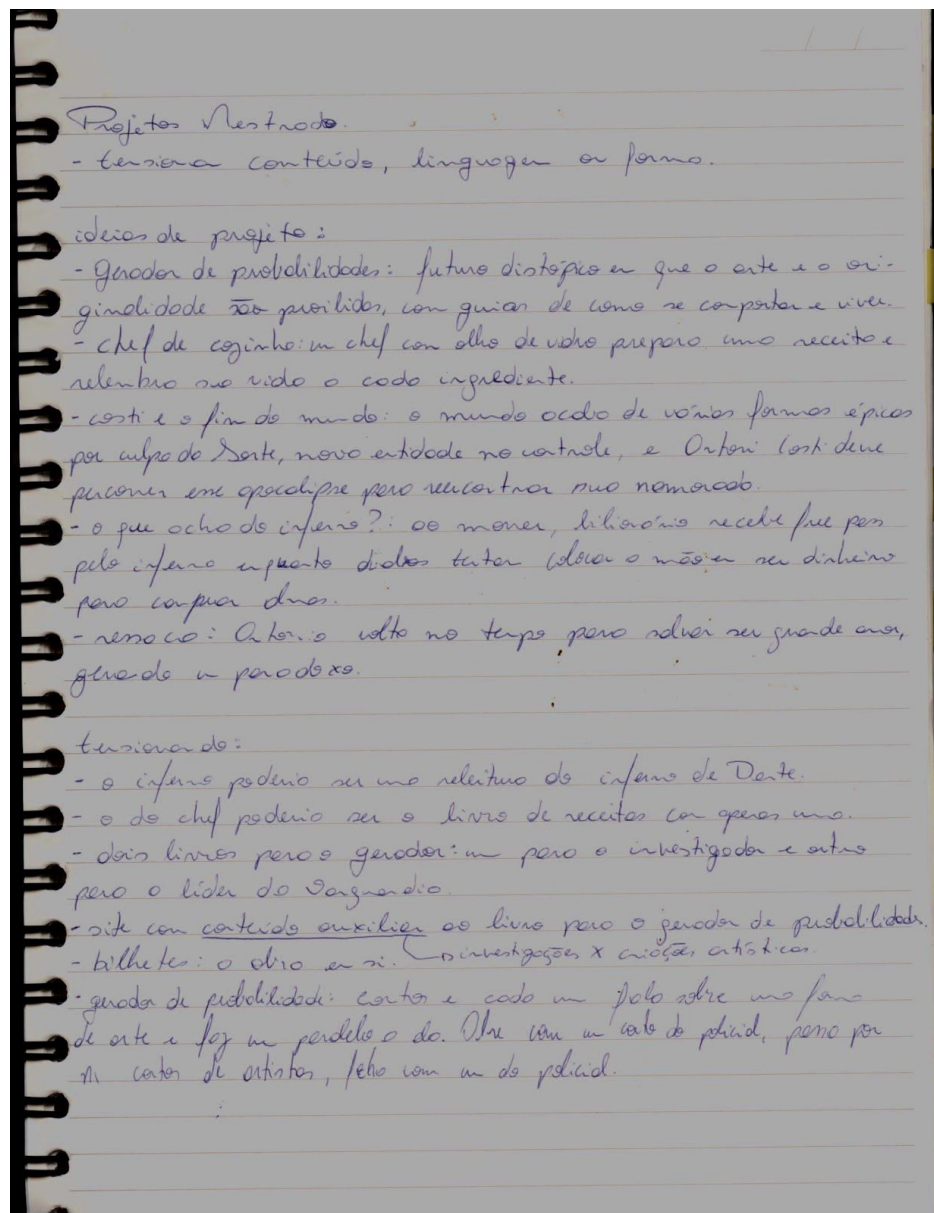 Projetos Mestrado.
- tensionar conteúdo, linguagem ou forma.
ideias de projeto:
- Gerador de probabilidades: futuro distópico em que a arte e a ori-
ginalidade são proibidas, com guias de como se comportar e viver.
- chef de cozinha: um chef com olho de vidro prepara uma receita e
relembra sua vida a cada ingrediente.
- costi e o fim do mundo: o mundo acaba de várias formas épicas
por culpa da Sorte, nova entidade no controle, e Antoni Costi deve
percorrer esse apocalipse para reencontrar sua namorada.
- o que acha do inferno?: ao morrer, bilionário recebe free pass
pelo inferno enquanto diabos tentam colocar a mão em seu dinheiro
para comprar almas.
- ressaca: Antonio volta no tempo para salvar seu grande amor,
gerando um paradoxo.
tensionando:
- o inferno poderia ser uma releitura do inferno de Dante.
- o do chef poderia ser o livro de receitas com apenas uma.
- dois livros para o gerador: um para o investigador e outro
para o líder da Vanguarda.
- site com conteúdo auxiliar ao livro para o gerador de probabilidades.
- bilhetes: a obra em si. investigações x criações artísticas.
- gerador de probabilidade: contos e cada um fala sobre uma forma
de arte e faz um paralelo a ela. Abre com um conto do policial, passa por
n contos de artistas, fecha com um do policial.